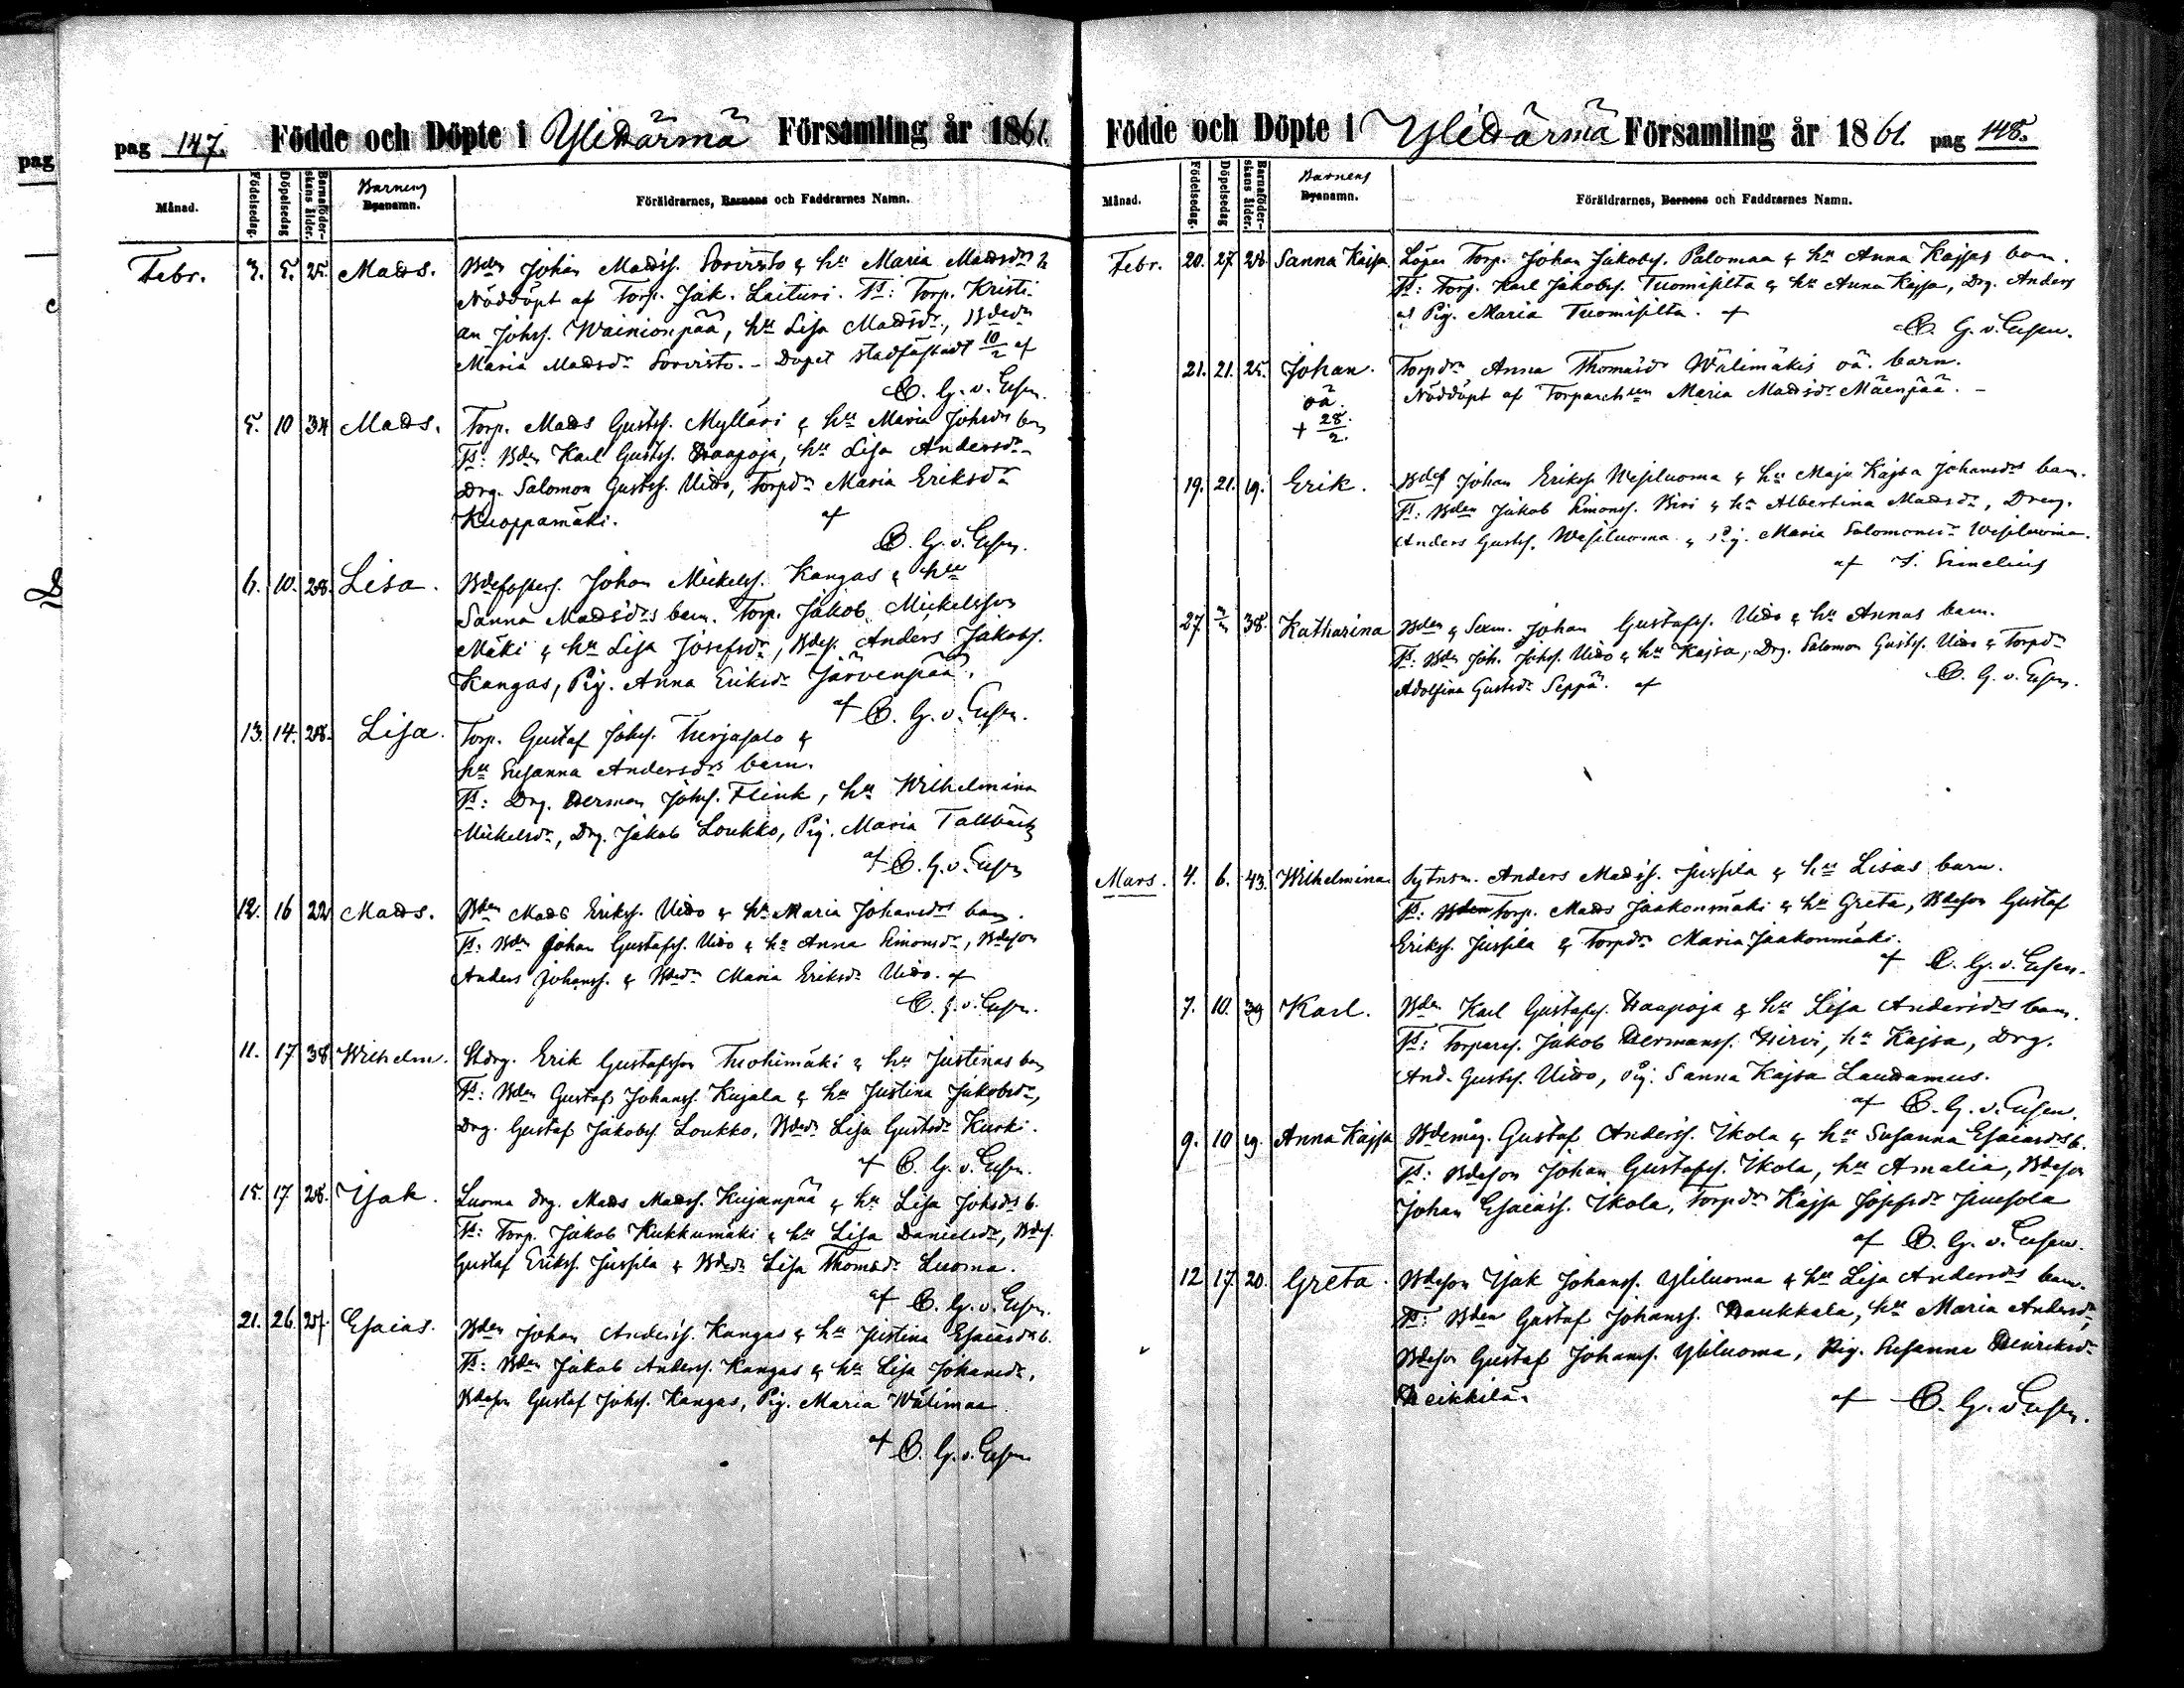 pag 147. Födde och Döpte i Ylihärmä Församling år 1861.
Månad. Födelsedag. Döpelsedag Barnaföderskans ålder. Barnens Byanamn. Föräldrarnes, Barnens och Faddrarnes Namn.
Febr. 3. 5. 25. Mads. Bden Johan Madsss. Sorvisto & hu Maria Madsdrs b
Nöddöpt af Torp. Jak. Laituri. Ts: Torp. Kristi-
an Johss. Wainionpää, hu Lisa Madsdr, Bdedr
Maria Madsdr Sorvisto. - Dopet stadfästadt 10/2 af
C. G. v. Essen.
5. 10 34 Mads. Torp. Mads Gustss. Mylläri & hu Maria Johsdrs barn
Ts: Bden Karl Gustss. Haapoja, hu Lisa Andersdr
Drg. Salomon Gustss. Uido, Torpdr Maria Eriksdr
Kuoppamäki. af
C. G. v. Essen.
6. 10. 28. Lisa. Johan Mickelss. Kangas & hu
Sanna Madsdrs barn. Torp. Jakob Mickelsson
Mäki & hu Lisa Josefsdr, Bdes. Anders Jakobs.
Kangas, Pig. Anna Eriksdr Järvenpää.
af C. G. v. Essen.
13. 14. 28. Lisa. Torp. Gustaf Johss. Herjasalo &
hu Susanna Andersdrs barn.
Ts: Drg. Herman Johss. Flink, hu Wilhelmina
Mickelsdr, Drg. Jakob Loukko, Pig. Maria Tallbäck
af C. G. v. Essen
12. 16 22 Mads. Bden Mads Erikss. Uido & hu Maria Johansdrs barn.
Ts: Bden Johan Gustafss. Uido & hu Anna Simonsdr, Bdeson
Anders Johanss. & Bdedr Maria Eriksdr Uido. af
C. G. v. Essen.
11. 17 38 Wilhelm. Stdrg. Erik Gustafsson Thohimäki & hu Justinas barn
Ts: Bden Gustaf Johanss. Kujala & hu Justina Jakobsdr,
Drg. Gustaf Jakobss. Loukko, Bdedr Lisa Gustsdr Kuski.
af C. G. v. Essen.
15. 17. 28. Isak. Luoma drg. Mads Madss. Kujanpää & hu Lisa Johsdrs b.
Ts: Torp. Jakob Kukkumäki & hu Lisa Danielsdr, Bdes.
Gustaf Erikss. Jussila & Bdedr Lisa Thomsdr Luoma.
af C. G. v. Essen.
21. 26. 27. Esaias. Bden Johan Anderss. Kangas & hu Justina Esaiasdrs b.
Ts: Bden Jakob Anderss. Kangas & hu Lisa Johansdr,
Bdeson Gustaf Johss. Kangas, Pig. Maria Wälimaa
af C. G. v. Essen
Födde och Döpte i Ylihärmä Församling år 1861. pag 148.
Månad. Födelsedag. Döpelsedag Barnaföderskans ålder. Barnens Byanamn. Föräldrarnes, Barnens och Faddrarnes Namn.
Febr. 20. 27. 28. Sanna Kajsa. Torp. Johan Jakobss. Palomaa & hu Anna Kajsas barn.
Ts: Torp. Karl Jakobss. Tuomisilta & hu Anna Kajsa, Drg. Anders
& Pig. Maria Tuomisilta. af
C. G. v. Essen.
21. 21. 25. Johan. Torpdr Anna Thomasdr Wälimäkis oä. barn.
oä. Nöddöpt af Torparehun Maria Madsdr Mäenpää. -
+ 28/2.
19. 21. 19. Erik. Bdes Johan Erikss. Wesiluoma & hu Maja Kajsa Johansdrs barn.
Ts: Bden Jakob Simonss. Biri & hu Albertina Madsdr, Dreng.
Anders Gustss. Wesiluoma & Pig. Maria Salomonsdr Wesiluoma.
af Simelius
27. 38 Katharina Bden & Sexm. Johan Gustafss. Uido & hu Annas barn.
Ts: Bden Joh. Johss. Uido & hu Kajsa, Drg. Salomon Gustss. Uido & Torpdr
Adolfina Gustsdr Seppä. af C. G. v. Essen.
Mars. 4. 6. 43. Wilhelmina Sytnsm. Anders Madss. Jussila & hu Lisas barn.
Ts: Bden Torp. Mads Jaakonmäki & hu Greta, Bdeson Gustaf
Erikss. Jussila & Torpdr Maria Jaakonmäki.
af C. G. v. Essen.
7. 10. 39 Karl. Bden Karl Gustafss. Haapoja & hu Lisa Andersdrs barn.
Ts: Torpares. Jakob Hermanss. Hirvi, hu Kajsa, Drg.
And. Gustss. Uido, Pig. Sanna Kajsa Laudamus.
af C. G. v. Essen.
9. 10 19. Anna Kajsa Bdemåg. Gustaf Anderss. Ikola & hu Susanna Esaiasdrs b.
Ts: Bdeson Johan Gustafss. Ikola, hu Amalia, Bdeson
Johan Esaiass. Ikola, Torpdr Kajsa
af C. G. v. Essen.
12 17. 20. Greta. Bdeson Isak Johanss. Yliluoma & hu Lisa Andersdrs barn.
Ts: Bden Gustaf Johanss. Haukkala, hu Maria Andersdr,
Bdeson Gustaf Johanss. Yliluoma, Pig. Susanna Henriksdr
Heikkilä. af C. G. v. Essen.